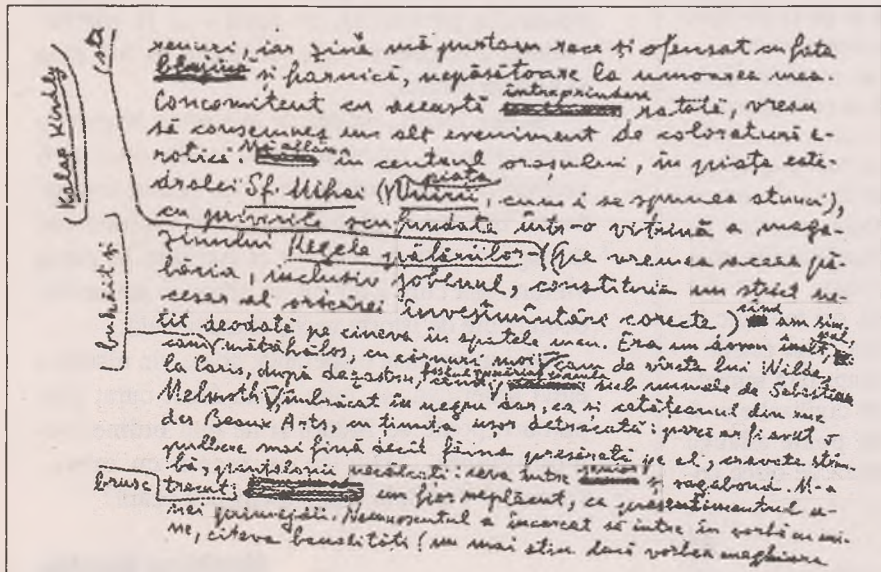 (Kalap Király
stă
bukăit și
brusc
renuri, iar zină mă purtam rece și ofensat cu fata
blajină și harnică, nepăsătoare la umoarea mea.
Concomitent cu această întreprindere ratată, vreau
să consemnez un alt eveniment de coloratură e-
rotică. Mă aflam în centrul orașului, în piața cate-
dralei Sf. Mihai (piața Unirii, cum i se spunea atunci),
cu privirile scufundate într-o vitrină a maga-
zinului Regele pălăriilor (pe vremea aceea pă-
lăria, inclusiv jobenul, constituia un strict ne-
cesar al oricărei învesmântări corecte) când am sim-
țit deodată pe cineva în spatele meu. Era un domn înalt,
cam mătăhălos, cu cărnuri moi, cam de vârsta lui Wilde,
la Paris, după dezastru, fostul când sub numele de Sebastian
Melmoth, îmbrăcat în negru dar, ca și cetățeanul din rue
des Beaux Arts, cu ținuta ușor detracată: parcă ar fi avut o
pulbere mai fină decît făina presărată pe el, cravata strîm-
bă, pantalonii necălcați: ceva între senior și vagabond. M-a
trecut un fior neplăcut, ca presentimentul u-
nei primejdii. Necunoscutul a încercat să intre în vorbă cu mi-
ne, cîteva banalități (nu mai știu dacă vorbea maghiara